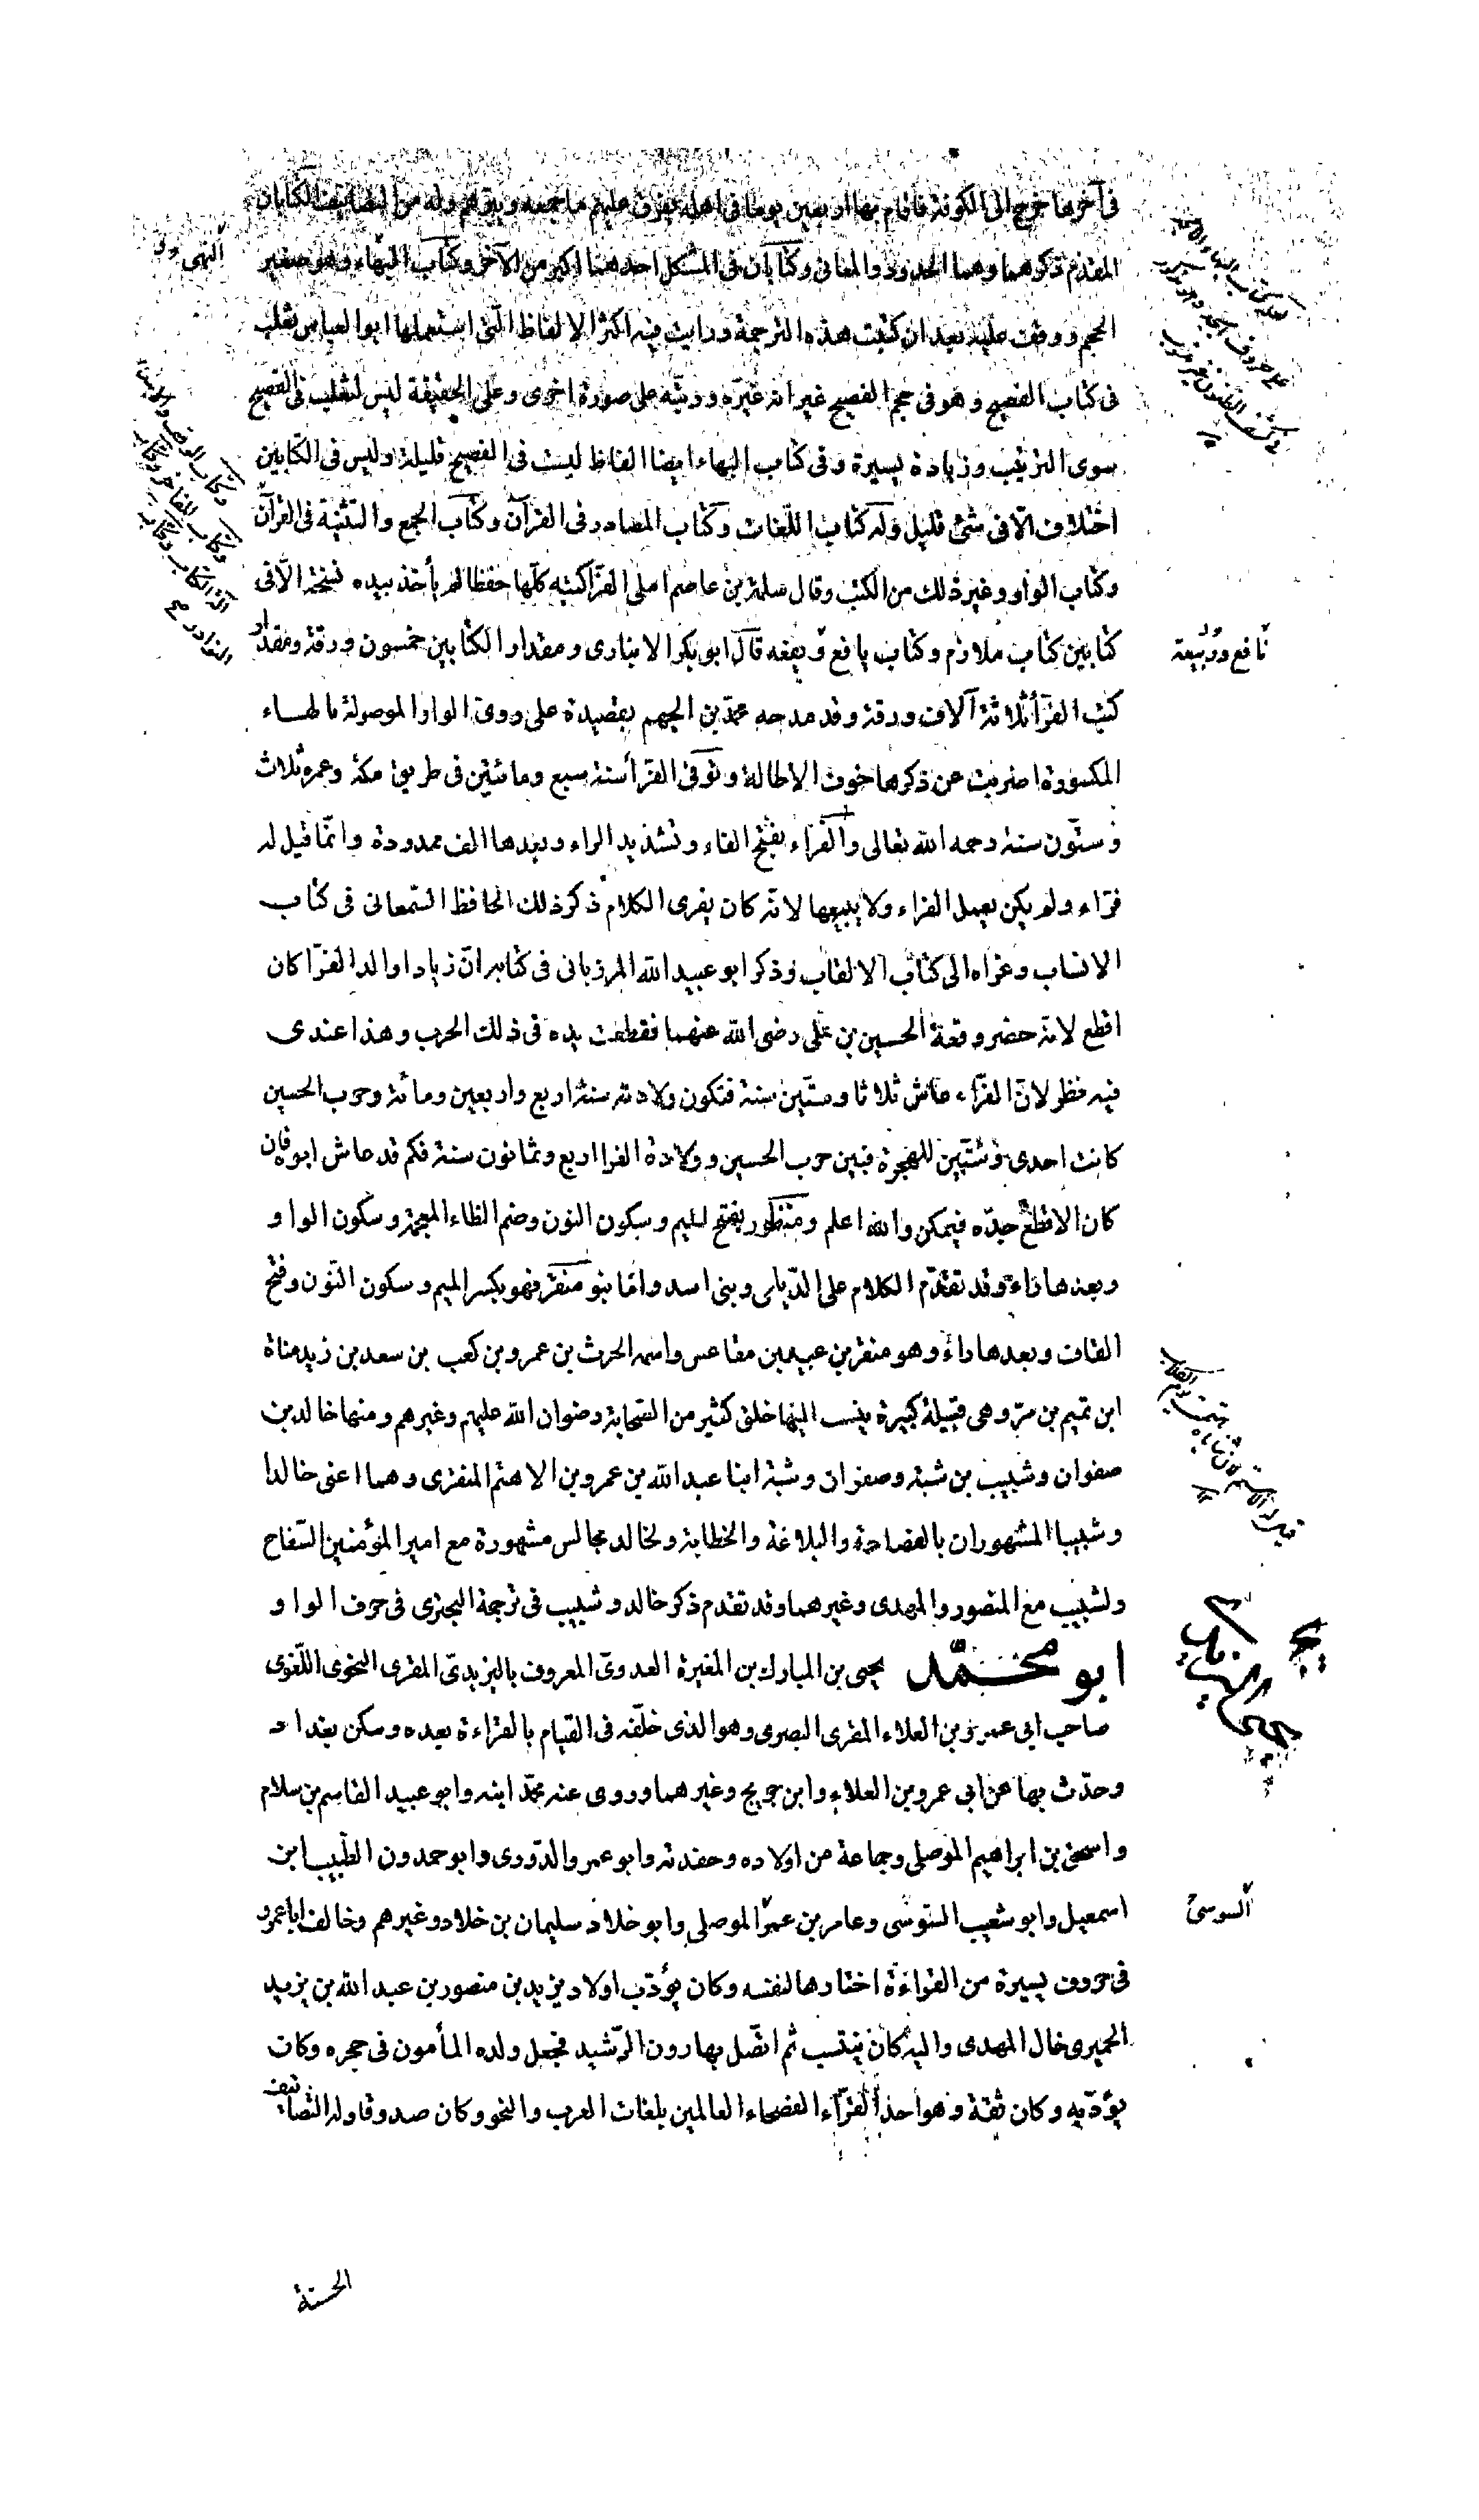 فى آخرها خرج الى الكوفة فاقام بها اربعين يوما فى اهله يفرق عليهم ما جمعه ويبرّهم وله من التصانيف الكتابان
المقدم ذكرهما وهما الحدود والمعانى وكتابان فى المشكل احدهما اكبر من الآخر وكتاب البهاء وهو صغير
الحجم ووقفت عليه بعد ان كتبت هذه الترجمة ورايت فيه اكثر الالفاظ التى استعملها ابو العباس ثعلب
فى كتاب الفصيح وهو فى حجم الفصيح غير انه غيّره ورتبه على صورة اخرى وعلى الحقيقة ليس لثعلب فى الفصيح
سوى الترتيب وزيادة يسيرة وفى كتاب البهاء ايضا الفاظ ليست فى الفصيح قليلة وليس فى الكتابين
اختلاف الّا فى شئ قليل وله كتاب اللّغات وكتاب المصادر فى القرآن وكتاب الجمع والتثنية فى القرآن
وكتاب الواو وغير ذلك من الكتب وقال سلمة بن عاصم املى الفرّا كتبه كلّها حفظا لم يأخذ بيده نسخة الّا فى
كتابين كتاب ملازم وكتاب يافع ويفعه قال ابو بكر الانبارى ومقدار الكتابين خمسون ورقة ومقدار
كتب الفرّأ ثلاثة آلاف ورقة وقد مدحه محمّد بن الجهم بقصيدة على روىّ الواو الموصولة بالهاء
المكسورة اضربت عن ذكرها خوف الاطالة وتوفى الفرّأ سنة سبع ومائتين فى طريق مكة وعمره ثلاث
وستّون سنة رحمه الله تعالى والفرّاء بفتح الفاء وتشديد الراء وبعدها الف ممدودة وانّما قيل له
فرّاء ولم يكن يعمل الفراء ولا يبيعها لانّه كان يفرى الكلام ذكر ذلك الحافظ السّمعانى فى كتاب
الانساب وعزاه الى كتاب الالقاب وذكر ابو عبيد الله المرزبانى فى كتابه انّ زيادا والد الفرّا كان
اقطع لانّه حضر وقعة الحسين بن على رضى الله عنهما فقطعت يده فى ذلك الحرب وهذا عندى
فيه نظر لانّ الفرّاء عاش ثلاثا وستّين سنة فتكون ولادته سنة اربع واربعين ومائة وحرب الحسين
كانت احدى وستّين للهجرة فبين حرب الحسين وولادة الفرا اربع وثمانون سنة فكم قد عاش ابوه فان
كان الاقطع جدّه فيمكن والله اعلم ومنظور بفتح الميم وسكون النون وضم الظاء المعجمة وسكون الواو
وبعدها راء وقد تقدّم الكلام على الدّيلمى وبنى اسد وامّا بنو منقر فهو بكسر الميم وسكون النّون وفتح
القاف وبعدها راء وهو منقر بن عبيد بن مقاعس واسمه الحرث بن عمرو بن كعب بن سعد بن زيد مناة
ابن تميم بن مرّ وهى قبيلة كبيرة ينسب اليها خلق كثير من الصّحابة رضوان الله عليهم وغيرهم ومنها خالد بن
صفوان وشبيب بن شبة وصفوان وشبة ابنا عبد الله بن عمرو بن الاهتم المنقرى وهما اعنى خالدا
وشبيبا المشهوران بالفصاحة والبلاغة والخطابة ولخالد مجالس مشهورة مع امير المؤمنين السّفاح
ولشبيب مع المنصور والمهدى وغيرهما وقد تقدم ذكر خالد وشبيب فى ترجمة البحترى فى حرف الواو
ابو محمّد يحيى بن المبارك بن المغيرة العدوىّ المعروف باليزيدىّ المقرى النحوى اللّغوى
صاحب ابى عمرو بن العلاء المقرى البصرى وهو الذى خلّفه فى القيام بالقراءة بعده وسكن بغداد
وحدّث بها عن ابى عمرو بن العلاء وابن جريج وغيرهما وروى عنه محمّد ابنه وابو عبيد القاسم بن سلام
واسحق بن ابراهيم الموصلى وجماعة من اولاده وحفدته وابو عمرو الدّورى وابو حمدون الطّيب ابن
اسمعيل وابو شعيب السّوسى وعامر بن عمر الموصلى وابو خلاد سليمان بن خلاد وغيرهم وخالف ابا عمرو
فى حروف يسيرة من القراءة اختارها لنفسه وكان يؤدّب اولاد يزيد بن منصور بن عبد الله بن يزيد
الحميرى خال المهدى واليه كان ينتسب ثم اتّصل بهارون الرّشيد فجعل ولده المأمون فى حجره وكان
يؤدّبه وكان ثقة وهو احد القرّاء الفصحاء العالمين بلغات العرب والنحو وكان صدوقا وله التّصانيف
البهى
نافع وربيعة
السوسى
الحسنة